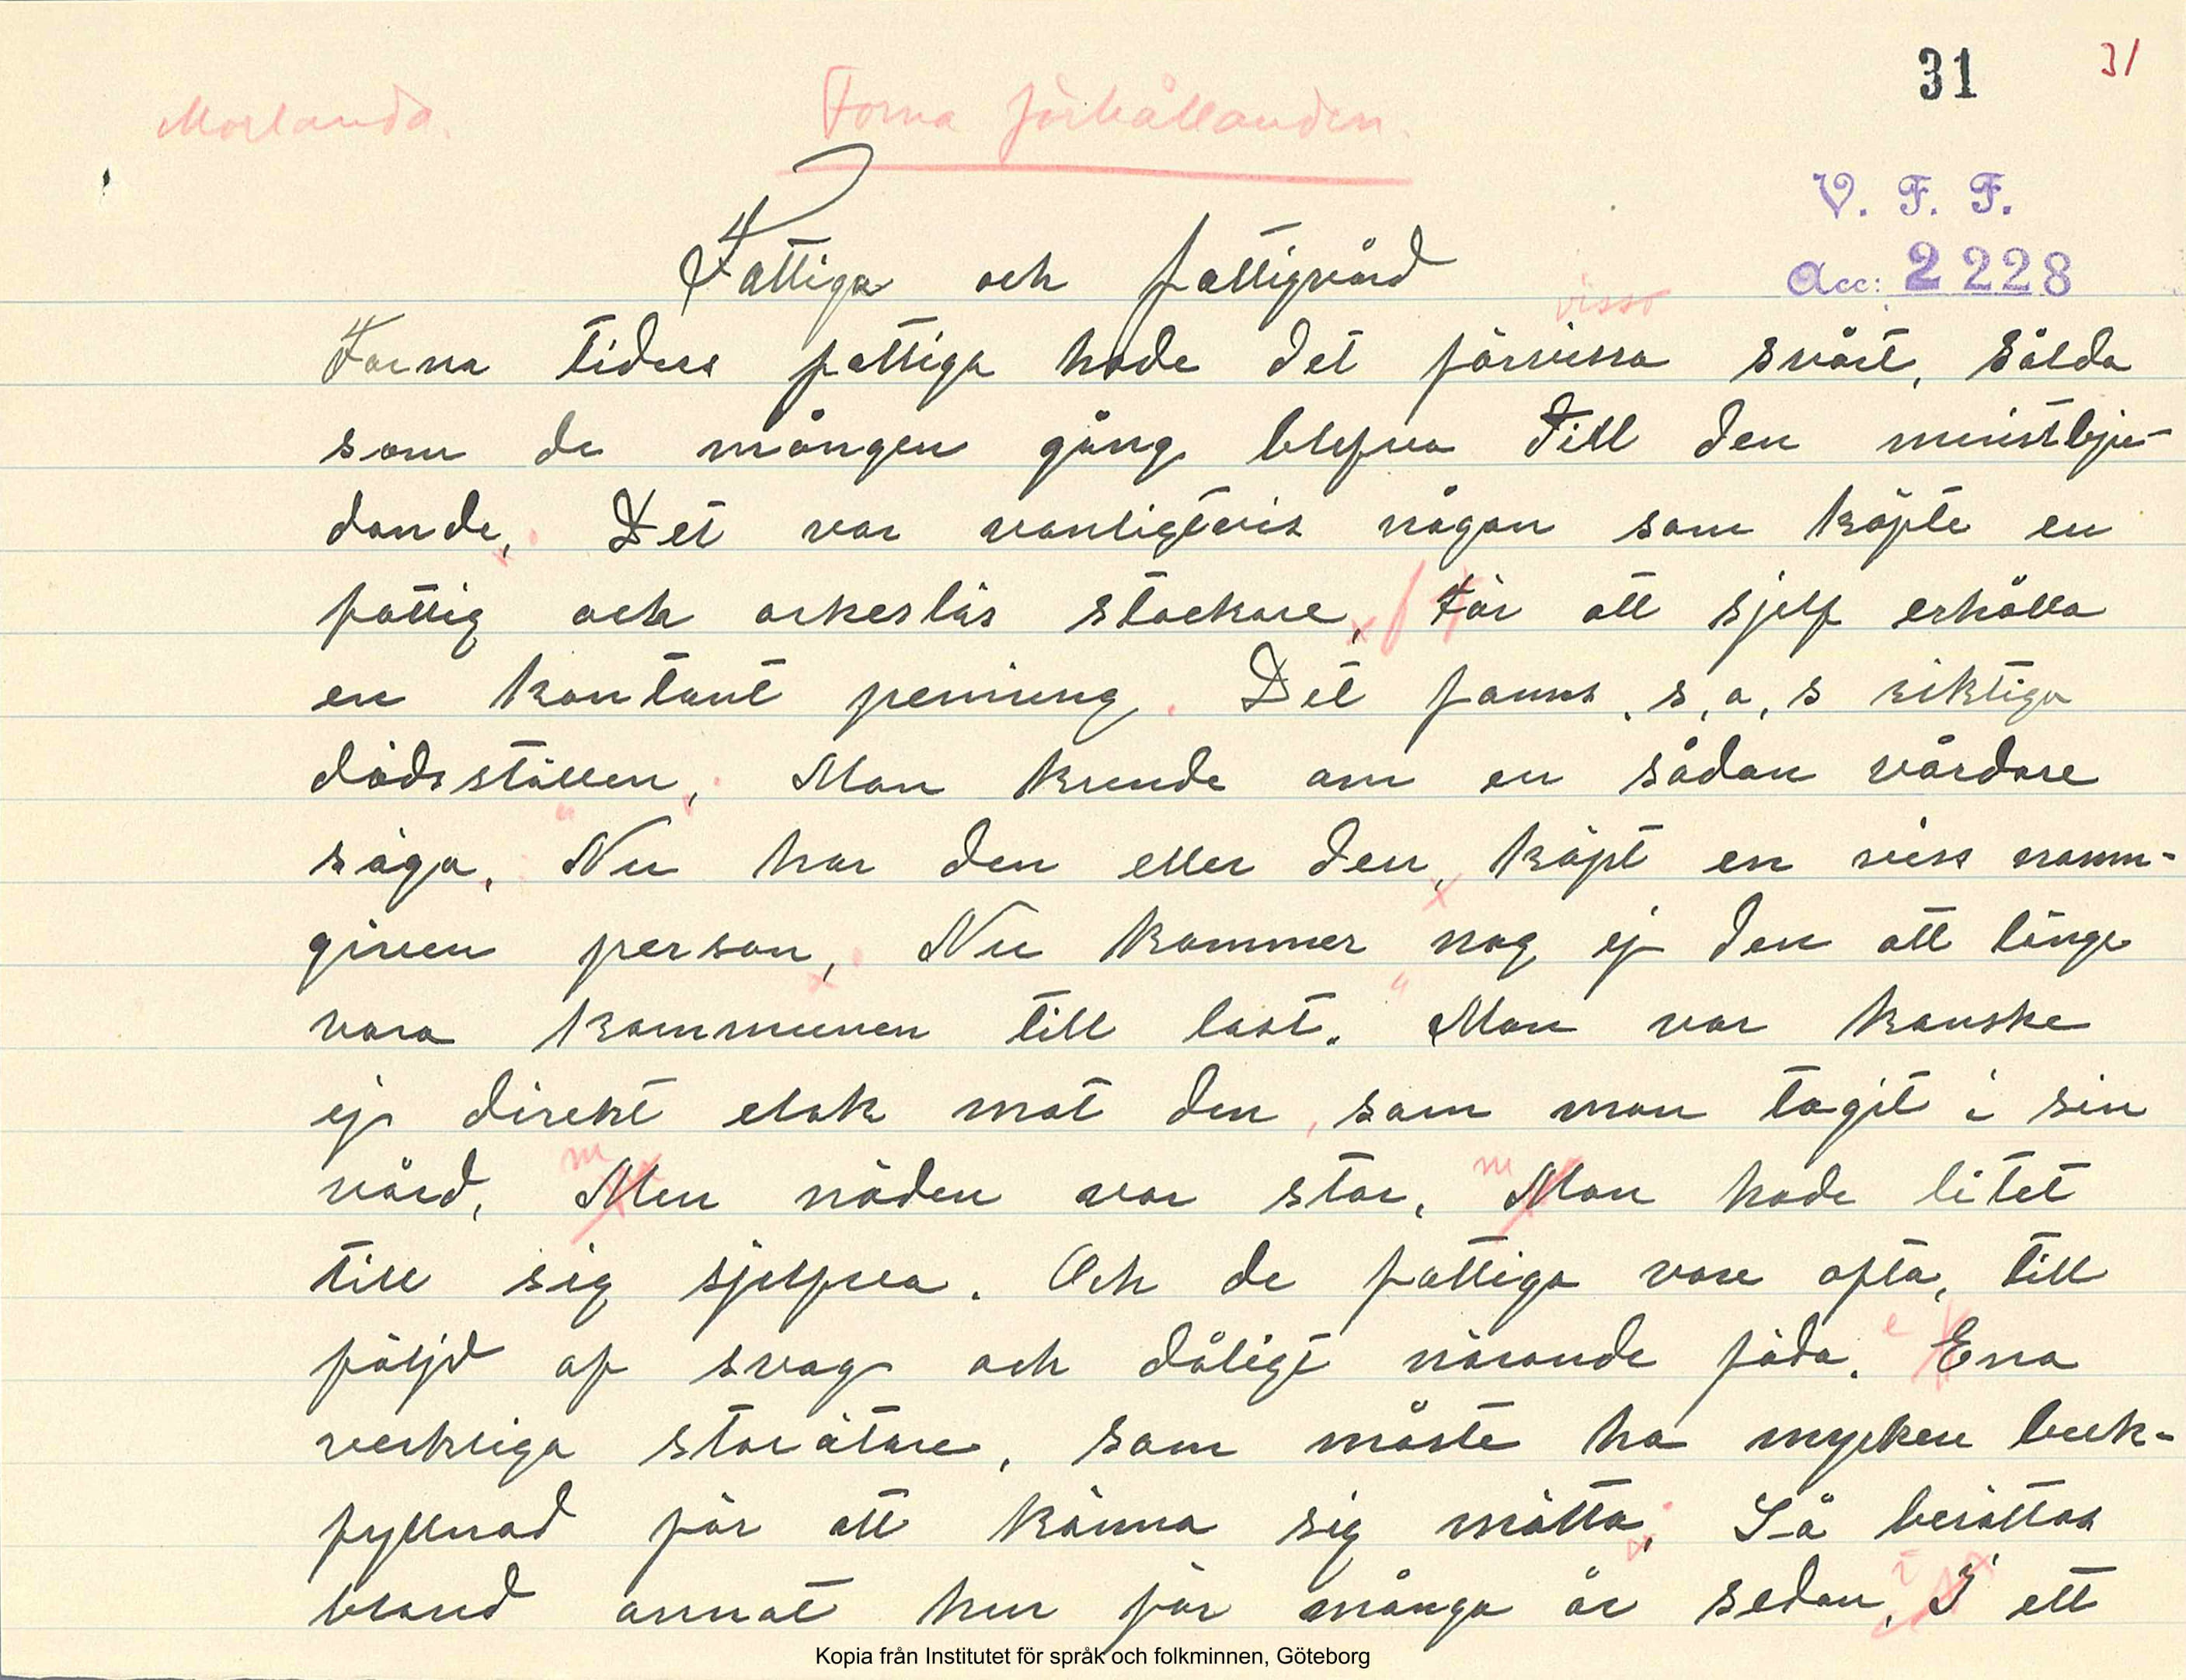 31 31
Morlanda. Forna förhållanden.
V. F. F.
Fattiga och fattigvård
Acc: 2228
visst
Forna tiders fattiga hade det förvissa svårt, Sålda
som de mången gång blefvo Till den minstbju-
dande, Det var vanligtvis någon som köpte en
fattig och orkeslös stackare, För att sjelf erhålla
en kontant penning. Det fanns, s, a, s riktiga
dödsställen, Man kunde om en sådan vårdare
säga, "Nu har den eller den, köpt en viss namn-
given person, Nu kommer nog ej den att länge
vara kommunen till last." Man var kanske
ej direkt elak mot den, som man tagit i sin
m m
vård, Men nöden var stor, Man hade litet
till sig sjelfva. Och de fattiga voro ofta, till
följd af svag och dåligt närande föda. Ena
e
verkliga storätare, som måste ha mycken buk-
fyllnad för att känna sig mätta, Så berättas
bland annat hur för många år sedan, I ett
i
Kopia från Institutet för språk och folkminnen, Göteborg